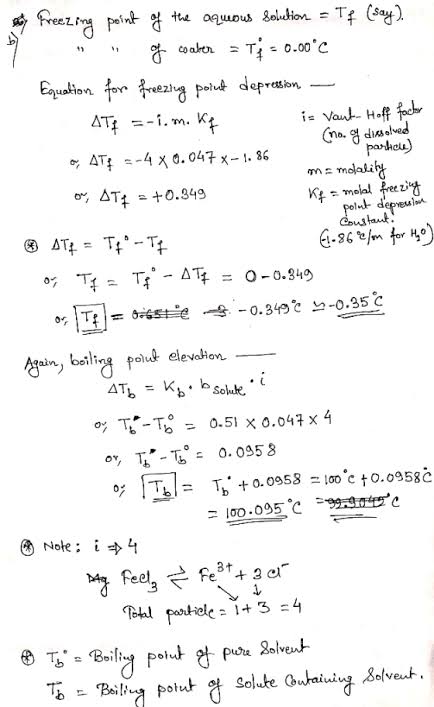 b) Freezing point of the aqueous solution = Tf (say).
" " of water = Tf° = 0.00°C
Equation for freezing point depression —
ΔTf = -i. m. Kf
or, ΔTf = -4 × 0.047 × -1.86
or, ΔTf = +0.349
i = Vant-Hoff factor
(no. of dissolved
particle)
m = molality
Kf = molal freezing
point depression
constant.
(-1.86 °c/m for H2O)
⊛ ΔTf = Tf° - Tf
or, Tf = Tf° - ΔTf = 0 - 0.349
or, Tf = 0.651°C ⇒ -0.349°C ≃ -0.35°C
Again, boiling point elevation —
ΔTb = Kb . b solute . i
or, Tb - Tb° = 0.51 × 0.047 × 4
or, Tb - Tb° = 0.0958
or, Tb = Tb° + 0.0958 = 100°C + 0.0958°C
= 100.095°C = 99.9045°C
⊛ Note: i ⇒ 4
Mg FeCl3 ⇌ Fe3+ + 3 Cl-
Total particle = 1 + 3 = 4
⊛ Tb° = Boiling point of pure Solvent
Tb = Boiling point of solute Containing Solvent.